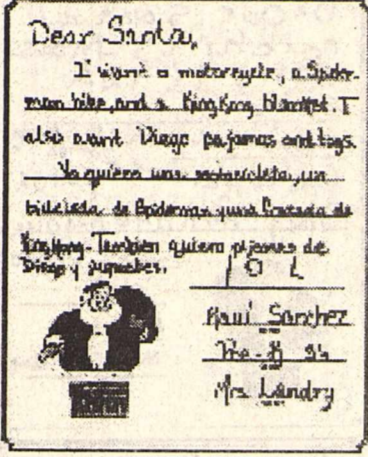 Dear Santa,
I want a motorcycle, a Spider-
man bike, and a King Kong blanket. I
also want Diego pajamas and toys.
Yo quiero una motocicleta, un
de Spiderman y una frazada de
King Kong. Tambien quiero pijamas de
Diego y juguetes.
Raul Sanchez
Pre-K
Mrs. Landry